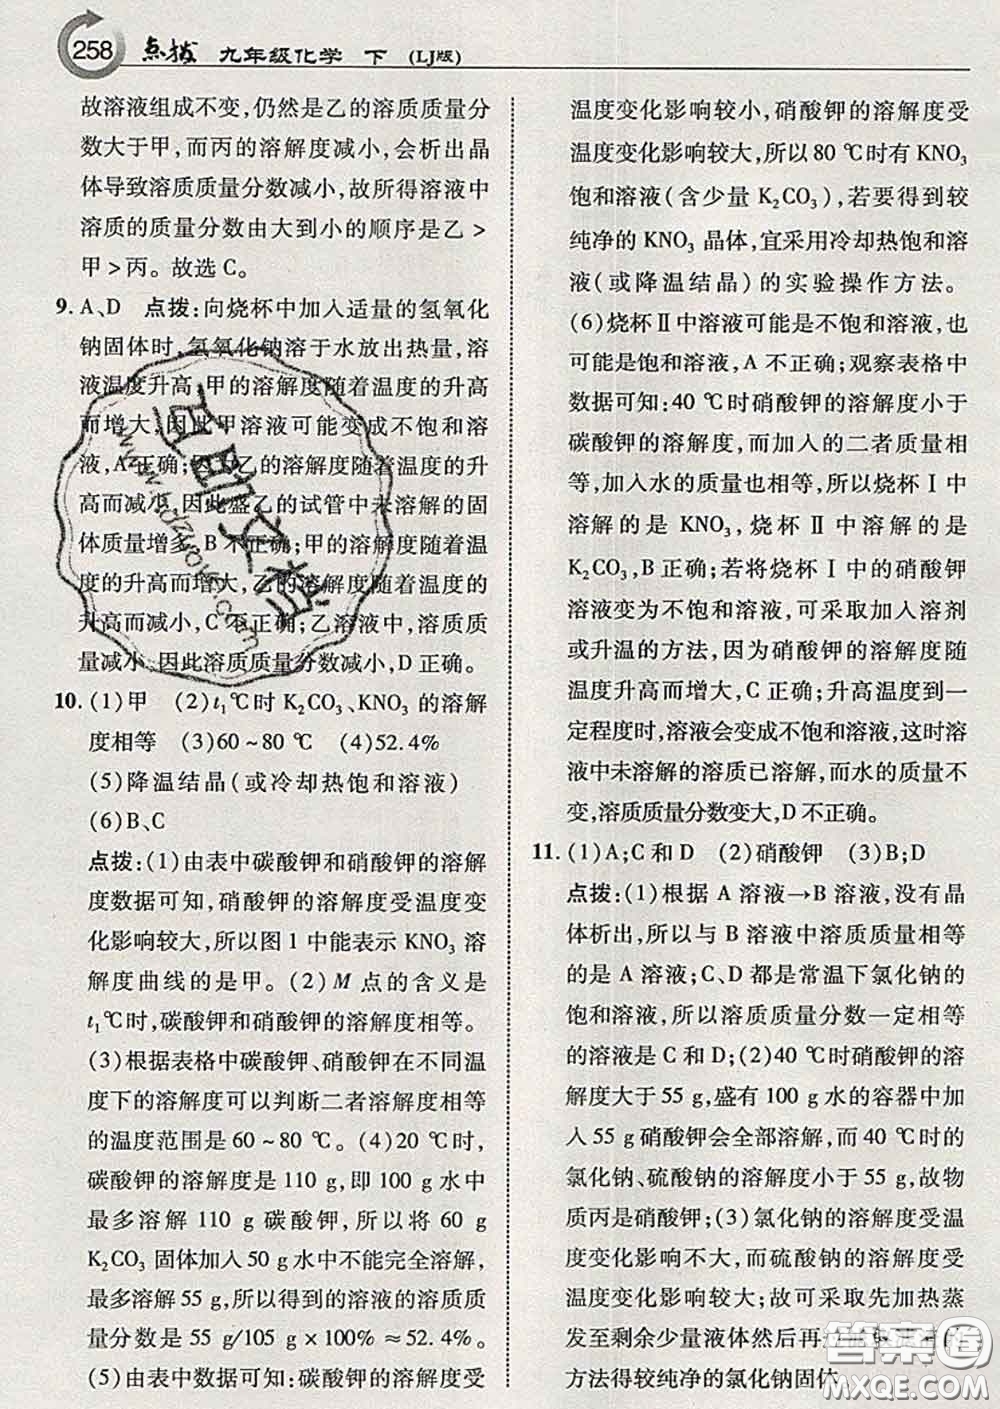 258 点拨 九年级化学 下 (LJ版)
故溶液组成不变,仍然是乙的溶质质量分
数大于甲,而丙的溶解度减小,会析出晶
体导致溶质质量分数减小,故所得溶液中
溶质的质量分数由大到小的顺序是乙>
甲>丙。故选C。
9. A、D 点拨:向烧杯中加入适量的氢氧化
钠固体时,氢氧化钠溶于水放出热量,溶
液温度升高,甲的溶解度随着温度的升高
而增大,因此甲溶液可能变成不饱和溶
液,A正确;因为乙的溶解度随着温度的升
高而减小,因此盛乙的试管中未溶解的固
体质量增多,B不正确;甲的溶解度随着温
度的升高而增大,乙的溶解度随着温度的
升高而减小,C不正确;乙溶液中,溶质质
量减小,因此溶质质量分数减小,D正确。
10. (1)甲 (2)t₁℃时K₂CO₃、KNO₃的溶解
度相等 (3)60~80 ℃ (4)52.4%
(5)降温结晶(或冷却热饱和溶液)
(6)B、C
点拨:(1)由表中碳酸钾和硝酸钾的溶解
度数据可知,硝酸钾的溶解度受温度变
化影响较大,所以图1中能表示KNO₃溶
解度曲线的是甲。(2)M点的含义是
t₁℃时,碳酸钾和硝酸钾的溶解度相等。
(3)根据表格中碳酸钾、硝酸钾在不同温
度下的溶解度可以判断二者溶解度相等
的温度范围是60~80 ℃。(4)20 ℃时,
碳酸钾的溶解度是110 g,即100 g水中
最多溶解110 g碳酸钾,所以将60 g
K₂CO₃固体加入50 g水中不能完全溶解,
最多溶解55 g,所以得到的溶液的溶质质
量分数是55 g/105 g×100%≈52.4%。
(5)由碳酸钾和硝酸钾的溶解度受
温度变化影响较小,硝酸钾的溶解度受
温度变化影响较大,所以80 ℃时有KNO₃
饱和溶液(含少量K₂CO₃),若要得到较
纯净的KNO₃晶体,宜采用冷却热饱和溶
液(或降温结晶)的实验操作方法。
(6)烧杯Ⅱ中溶液可能是不饱和溶液,也
可能是饱和溶液,A不正确;观察表格中
数据可知:40 ℃时硝酸钾的溶解度小于
碳酸钾的溶解度,而加入的二者质量相
等,加入水的质量也相等,所以烧杯Ⅰ中
溶解的是KNO₃,烧杯Ⅱ中溶解的是
K₂CO₃,B正确;若将烧杯Ⅰ中的硝酸钾
溶液变为不饱和溶液,可采取加入溶剂
或升温的方法,因为硝酸钾的溶解度随
温度升高而增大,C正确;升高温度到一
定程度时,溶液会变成不饱和溶液,这时溶
液中未溶解的溶质已溶解,而水的质量不
变,溶质质量分数变大,D不正确。
11. (1)A;C和D (2)硝酸钾 (3)B;D
点拨:(1)根据A溶液→B溶液,没有晶
体析出,所以与B溶液中溶质质量相等
的是A溶液;C、D都是常温下氯化钠的
饱和溶液,所以溶质质量分数一定相等
的溶液是C和D;(2)40 ℃时硝酸钾的溶
解度大于55 g,盛有100 g水的容器中加
入55 g硝酸钾会全部溶解,而40 ℃时的
氯化钠、硫酸钠的溶解度小于55 g,故物
质丙是硝酸钾;(3)氯化钠的溶解度受温
度变化影响不大,而硫酸钠的溶解度受
温度变化影响较大;故可采取加热蒸
发至剩余少量液体然后再
方法得较纯净的氯化钠固体。
答案圈
MXQE.COM